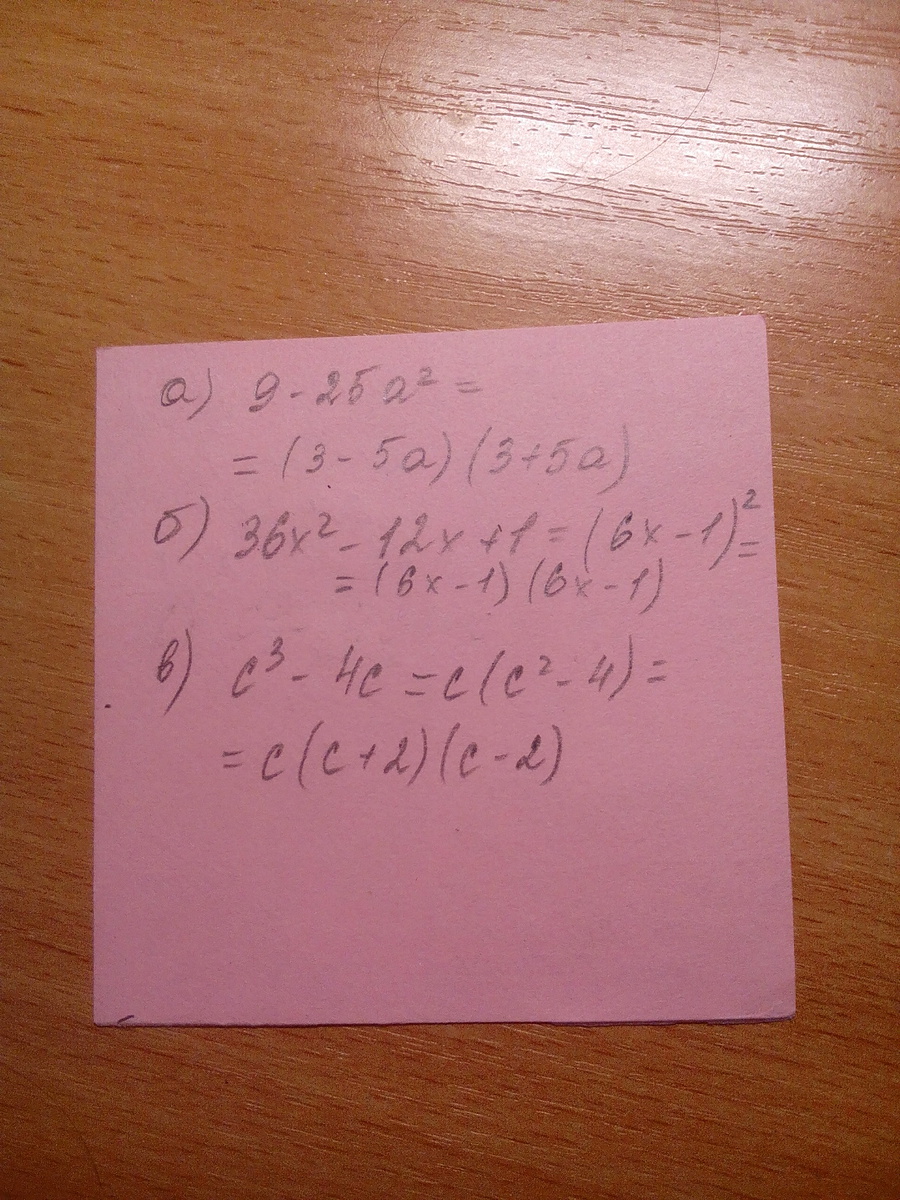 а) 9 - 25a² =
= (3 - 5a) (3+5a)
б) 36x² - 12x + 1 = (6x - 1)² =
= (6x - 1) (6x - 1)
в) c³ - 4c = c (c² - 4) =
= c (c + 2) (c - 2)